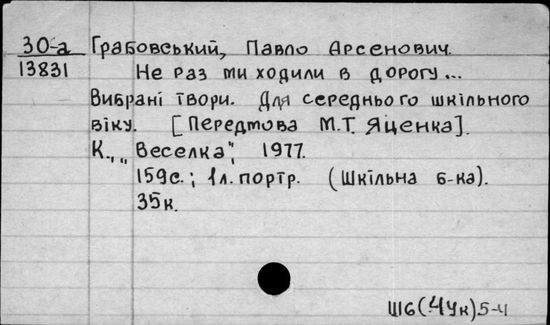 30-а Грабовський, Павло Арсенович.
13831 Не раз ми ходили в дорогу...
Вибрані твори. Для середнього шкільного
віку. [Передмова М.Т. Яценка].
К., „Веселка", 1977.
159с.; 1л. портр. (Шкільна б-ка).
35к.
Ш6(4Ук)5-4